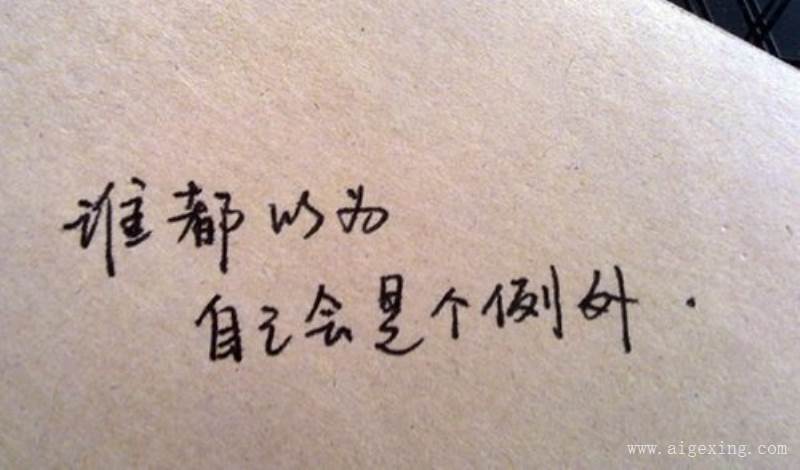 谁都以为
自己会是个例外.
www.aigexing.com